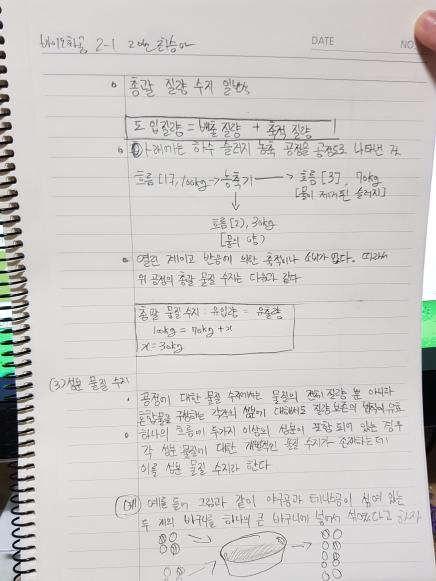 바이오화공 2-1
DATE
NO.
총괄 질량 수지 일반식
도입질량 = 배출 질량 + 축적 질량
아래에는 하수 슬러지 농축 공정을 공정도로 나타낸 것
흐름 [1], 100kg → 농축기 → 흐름 [3], 70kg
[물이 제거된 슬러지]
흐름 [2], 30kg
[물의 양]
열린 계이고 반응에 의한 축적이나 소비가 없다. 따라서
위 공정의 총괄 물질 수지는 다음과 같다
총괄 물질 수지 : 유입량 = 유출량
100kg = 70kg + x
x = 30kg
(3) 성분 물질 수지
공정에 대한 물질 수지에서는 물질의 전체 질량 뿐 아니라
혼합물을 구성하는 각각의 성분에 대해서도 질량 보존의 법칙이 유효
하나의 흐름에 두가지 이상의 성분이 포함 되어 있는 경우
각 성분 물질에 대한 개별적인 물질 수지가 존재하는데
이를 성분 물질 수지라 한다
(예) 예를 들어 그림과 같이 야구공과 테니스공이 섞여 있는
두 개의 바구니를 하나의 큰 바구니에 넣어서 섞였다고 하자